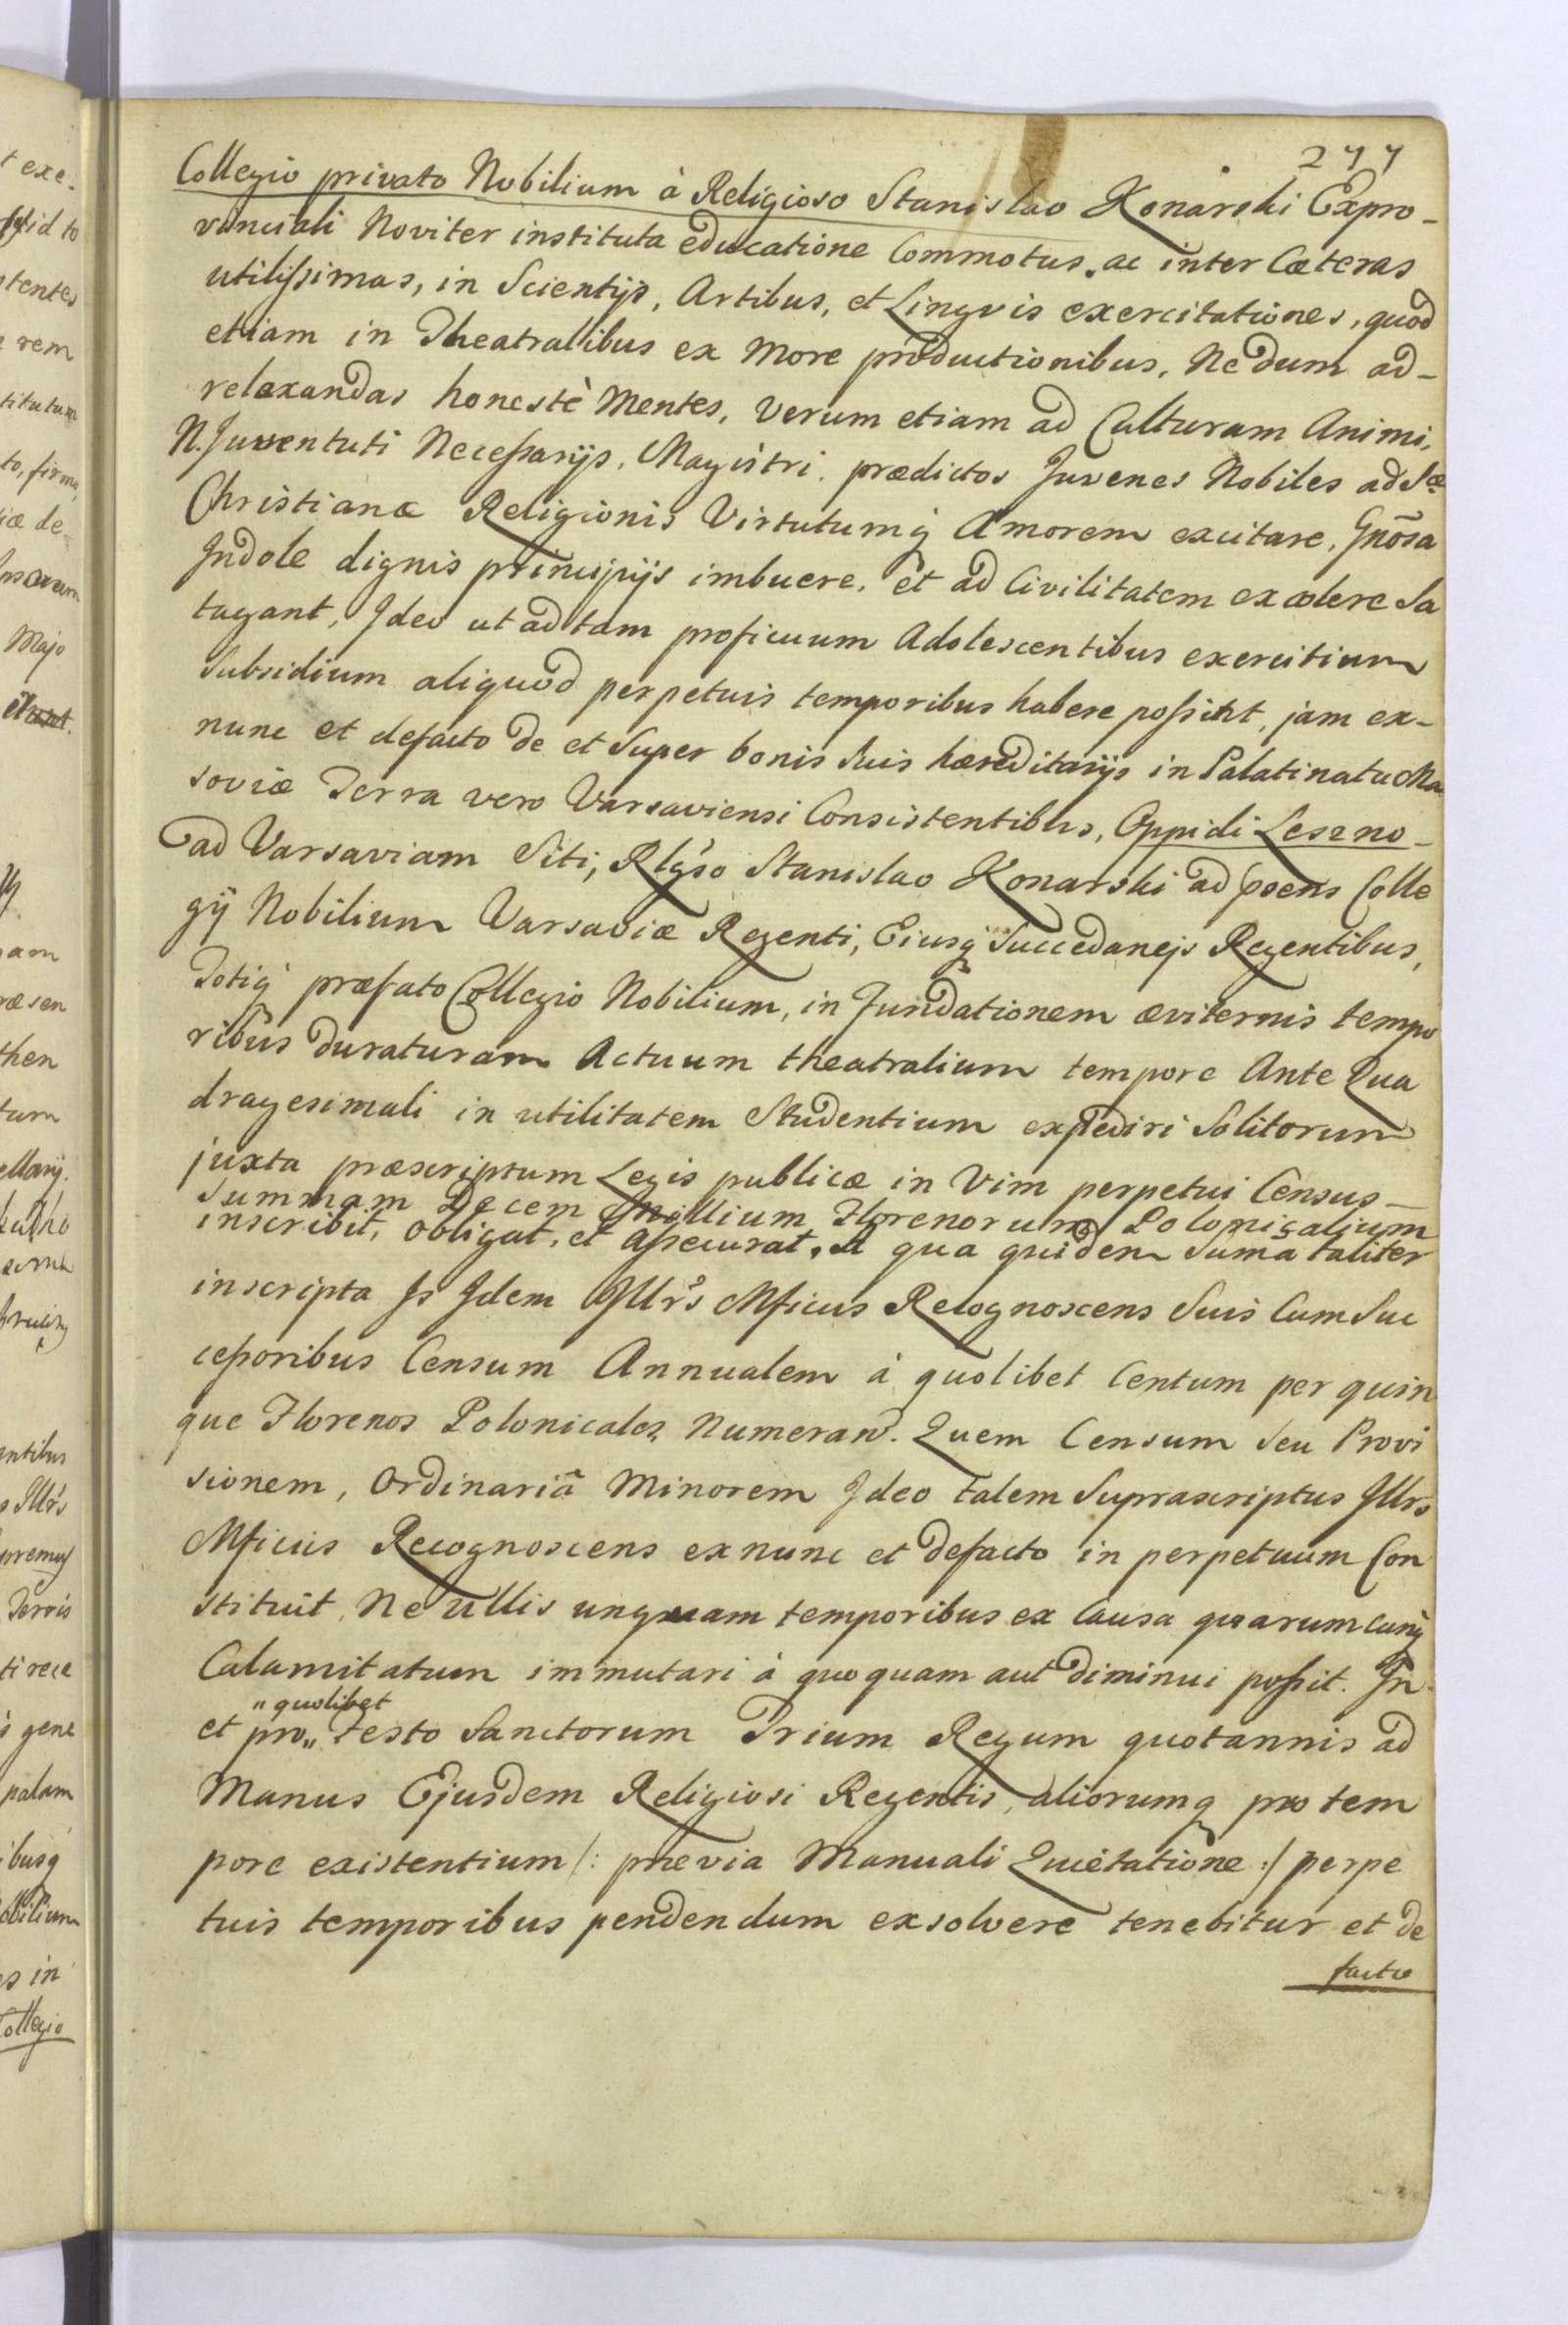 277
Collegio privato Nobilium à Religioso Stanislao Konarski Expro-
vinciali Noviter instituta educatione Commotus, ac inter Cæteras
utilissimas, in Scientijs, Artibus, et Lingvis exercitationes, quod
etiam in Theatralibus ex More productionibus, Nedum ad-
relaxandas honestè Mentes, Verum etiam ad Culturam Animi,
N. Juventuti Necessarijs, Magistri prædictos Juvenes Nobiles ad Sæ
Christianæ Religionis Virtutumq Amorem excitare, Gnõsa
Indole dignis principijs imbuere, et ad Civilitatem excolere Sa
tagant, Ideo ut ad tam proficuum Adolescentibus exercitium
Subsidium aliquod perpetuis temporibus habere possint, jam ex-
nunc et defacto de et Super bonis Suis hæreditarijs in Palatinatu Ma
soviæ Terra vero Varsaviensi Consistentibus, Oppidi Leszno-
ad Varsaviam Siti, Rlgso Stanislao Konarski ad pæens Colle
gij Nobilium Varsaviæ Regenti, Eiusq Succedanejs Regentibus,
Totiq præfato Collegio Nobilium, in Fundationem æviternis tempo
ribus duraturam Actuum theatralium tempore Ante Qua
dragesimali in utilitatem Studentium expediri Solitorum
juxta præscriptum Legis publicæ in Vim perpetui Census-
Summam Decem Millium Florenorum Polonicalium
inscribit, obligat, et assecurat. A qua quidem Suma taliter
inscripta Is Idem Illrs Mficus Recognoscens Suis Cum Suc
cessoribus Censum Annualem à quolibet Centum per quin
que Florenos Polonicales Numeran̄d. Quem Censum Seu Provi
sionem, Ordinariâ Minorem Ideo talem Suprascriptus Illrs
Mficus Recognoscens exnunc et defacto in perpetuum Con
stituit, Ne ullis unquam temporibus ex Causa quarumcunq
Calamitatum immutari à quoquam aut diminui possit. In
"quolibet
et pro" Festo Sanctorum Trium Regum quotannis ad
Manus Ejusdem Religiosi Regentis, aliorumq pro tem
pore existentium /: prævia Manuali Quietatione :/ perpe
tuis temporibus pendendum exsolvere tenebitur et de
facto